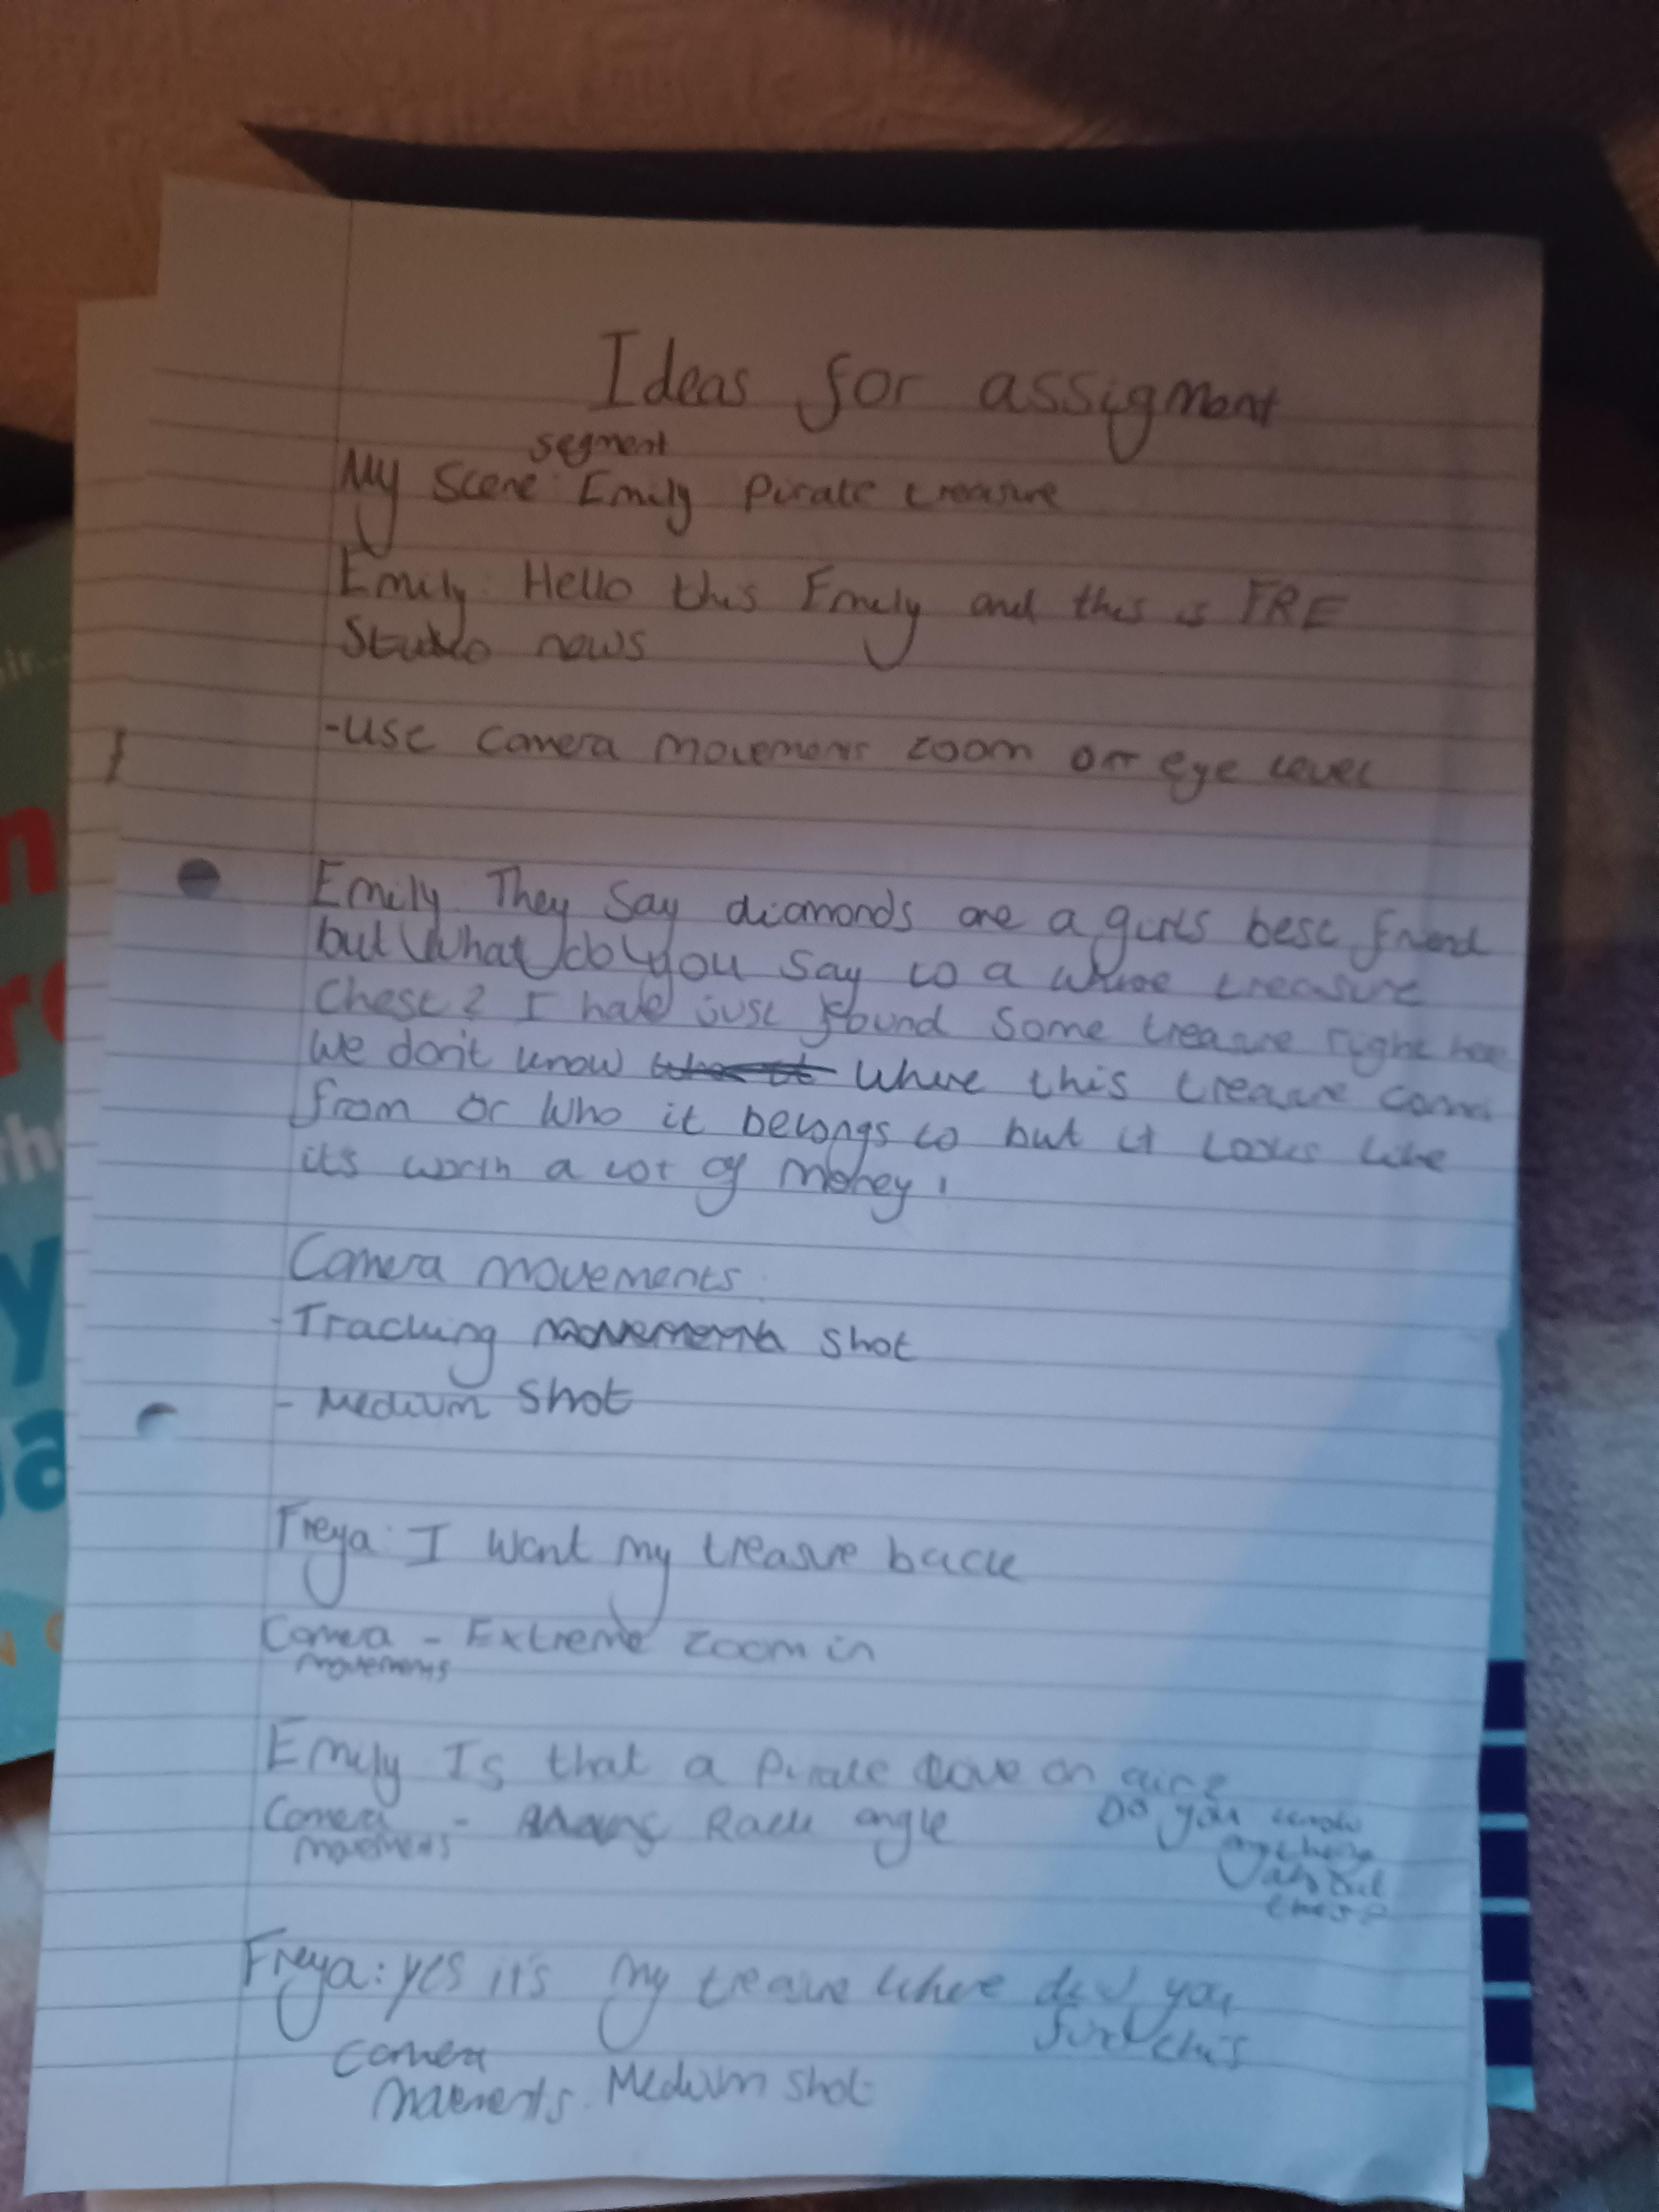 Ideas for assigment
segment
My Scene: Emily Pirate treasure
Emily: Hello this Emily and this is FRE
Studio news
-use camera movements zoom or eye level
Emily: They Say diamonds are a girls best friend
but what do you say to a whole treasure
Chest? I have just found some treasure right here
We don't know where this treasure comes
from or who it belongs to but it looks like
it's worth a lot of money!
Camera movements
-Tracking shot
- Medium shot
Freya: I want my treasure back
Camera - Extreme zoom in
movements
Emily Is that a pirate on air?
Do you know
anything
about
this?
Camera - Rack angle
movements
Freya: yes it's my treasure where did you
find this
camera
movements. Medium shot
n
re
y
a